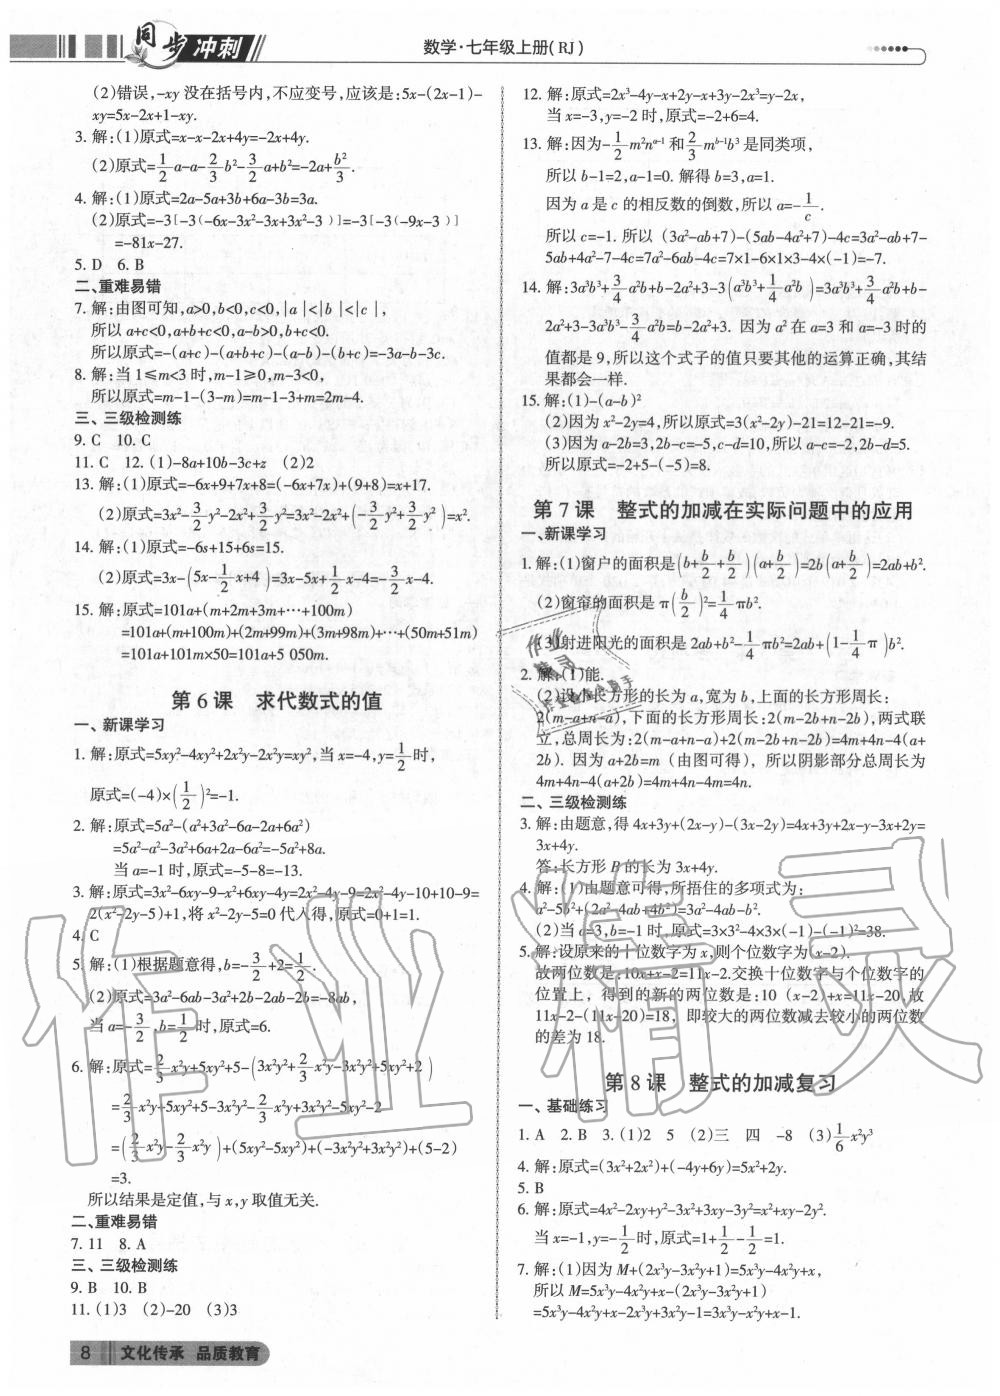 同步冲刺
数学·七年级上册(RJ)
(2)错误,-xy 没在括号内,不应变号,应该是:5x-(2x-1)-
xy=5x-2x+1-xy.
3. 解:(1)原式=x-x-2x+4y=-2x+4y.
(2)原式=1/2a-a-2/3b²-3/2a+b²=-2a+b²/3.
4. 解:(1)原式=2a-5a+3b+6a-3b=3a.
(2)原式=-3[-3(-6x-3x²-3x+3x²-3)]=-3[-3(-9x-3)]
=-81x-27.
5. D 6. B
二、重难易错
7. 解:由图可知,a>0,b<0,c<0,|a|<|b|<|c|,
所以 a+c<0,a+b+c<0,a-b>0,b+c<0.
所以原式=-(a+c)-(a+b+c)-(a-b)-(b+c)=-3a-b-3c.
8. 解:当 1≤m<3 时,m-1≥0,m-3<0,
所以原式=m-1-(3-m)=m-1-3+m=2m-4.
三、三级检测练
9. C 10. C
11. C 12. (1)-8a+10b-3c+z (2)2
13. 解:(1)原式=-6x+9+7x+8=(-6x+7x)+(9+8)=x+17.
(2)原式=3x²-3/2y²-2x²+3/2y²=3x²-2x²+(-3/2y²+3/2y²)=x².
14. 解:(1)原式=-6s+15+6s=15.
(2)原式=3x-(5x-1/2x+4)=3x-5x+1/2x-4=-3/2x-4.
15. 解:原式=101a+(m+2m+3m+…+100m)
=101a+(m+100m)+(2m+99m)+(3m+98m)+…+(50m+51m)
=101a+101m×50=101a+5 050m.
第 6 课 求代数式的值
一、新课学习
1. 解:原式=5xy²-4xy²+2x²y-2x²y=xy²,当 x=-4,y=1/2时,
原式=(-4)×(1/2)²=-1.
2. 解:原式=5a²-(a²+3a²-6a-2a+6a²)
=5a²-a²-3a²+6a+2a-6a²=-5a²+8a.
当 a=-1 时,原式=-5-8=-13.
3. 解:原式=3x²-6xy-9-x²+6xy-4y=2x²-4y-9=2x²-4y-10+10-9=
2(x²-2y-5)+1,将 x²-2y-5=0 代入得,原式=0+1=1.
4. C
5. 解:(1)根据题意得,b=-3/2+2=1/2.
(2)原式=3a²-6ab-3a²+2b-2ab-2b=-8ab,
当 a=-3/2,b=1/2时,原式=6.
6. 解:原式=2/3x²y+5xy²+5-(3x²y²+2/3x²y-3x²y²+5xy²+2)
=2/3x²y+5xy²+5-3x²y²-2/3x²y+3x²y²-5xy²-2
=(2/3x²y-2/3x²y)+(5xy²-5xy²)+(-3x²y²+3x²y²)+(5-2)
=3.
所以结果是定值,与 x,y 取值无关.
二、重难易错
7. 11 8. A
三、三级检测练
9. B 10. B
11. (1)3 (2)-20 (3)3
12. 解:原式=2x³-4y-x+2y-x+3y-2x³=y-2x,
当 x=-3,y=-2 时,原式=-2+6=4.
13. 解:因为-1/2m²nᵃ⁻¹和2/3mᵇ⁻¹b³是同类项,
所以 b-1=2,a-1=0. 解得 b=3,a=1.
因为 a 是 c 的相反数的倒数,所以 a=-1/c.
所以 c=-1. 所以 (3a²-ab+7)-(5ab-4a²+7)-4c=3a²-ab+7-
5ab+4a²-7-4c=7a²-6ab-4c=7×1-6×1×3-4×(-1)=-7.
14. 解:3a³b³+3/4a²b+b-2a²+3-3(a³b³+1/4a²b)=3a³b³+3/4a²b+b-
2a²+3-3a³b³-3/4a²b=b-2a²+3. 因为 a² 在 a=3 和 a=-3 时的
值都是 9,所以这个式子的值只要其他的运算正确,其结
果都会一样.
15. 解:(1)-(a-b)²
(2)因为 x²-2y=4,所以原式=3(x²-2y)-21=12-21=-9.
(3)因为 a-2b=3,2b-c=-5,c-d=10,所以 a-c=-2,2b-d=5.
所以原式=-2+5-(-5)=8.
第 7 课 整式的加减在实际问题中的应用
一、新课学习
1. 解:(1)窗户的面积是(b+b/2+b/2)(a+b/2)=2b(a+b/2)=2ab+b².
(2)窗帘的面积是 π(b/2)²=1/4πb².
(3)射进阳光的面积是 2ab+b²-1/4πb²=2ab+(1-1/4π)b².
2. 解:(1)能.
(2)设小长方形的长为 a,宽为 b,上面的长方形周长:
2(m-a+n-a),下面的长方形周长:2(m-2b+n-2b),两式联
立,总周长为:2(m-a+n-a)+2(m-2b+n-2b)=4m+4n-4(a+
2b). 因为 a+2b=m (由图可得), 所以阴影部分总周长为
4m+4n-4(a+2b)=4m+4n-4m=4n.
二、三级检测练
3. 解:由题意,得 4x+3y+(2x-y)-(3x-2y)=4x+3y+2x-y-3x+2y=
3x+4y.
答:长方形 B 的长为 3x+4y.
4. 解:(1)由题意可得,所捂住的多项式为:
a²-5b²+(2a²-4ab+4b²)=3a²-4ab-b².
(2)当 a=3,b=-1 时,原式=3×3²-4×3×(-1)-(-1)²=38.
5. 解:设原来的十位数字为 x,则个位数字为(x-2).
故两位数是:10x+x-2=11x-2.交换十位数字与个位数字的
位置上, 得到的新的两位数是:10 (x-2)+x=11x-20.故
11x-2-(11x-20)=18, 即较大的两位数减去较小的两位数
的差为 18.
第 8 课 整式的加减复习
一、基础练习
1. A 2. B 3. (1)2 5 (2)三 四 -8 (3)1/6x²y³
4. 解:原式=(3x²+2x²)+(-4y+6y)=5x²+2y.
5. B
6. 解:原式=4x²-2xy+y²-3x²+3xy-3y²=x²+xy-2y².
当 x=-1,y=-1/2时,原式=1+1/2-1/2=1.
7. 解:(1)因为 M+(2x³y-3x²y+1)=5x³y-4x²y+x,
所以 M=5x³y-4x²y+x-(2x³y-3x²y+1)
=5x³y-4x²y+x-2x³y+3x²y-1=3x³y-x²y+x-1.
8 文化传承 品质教育
作业精灵